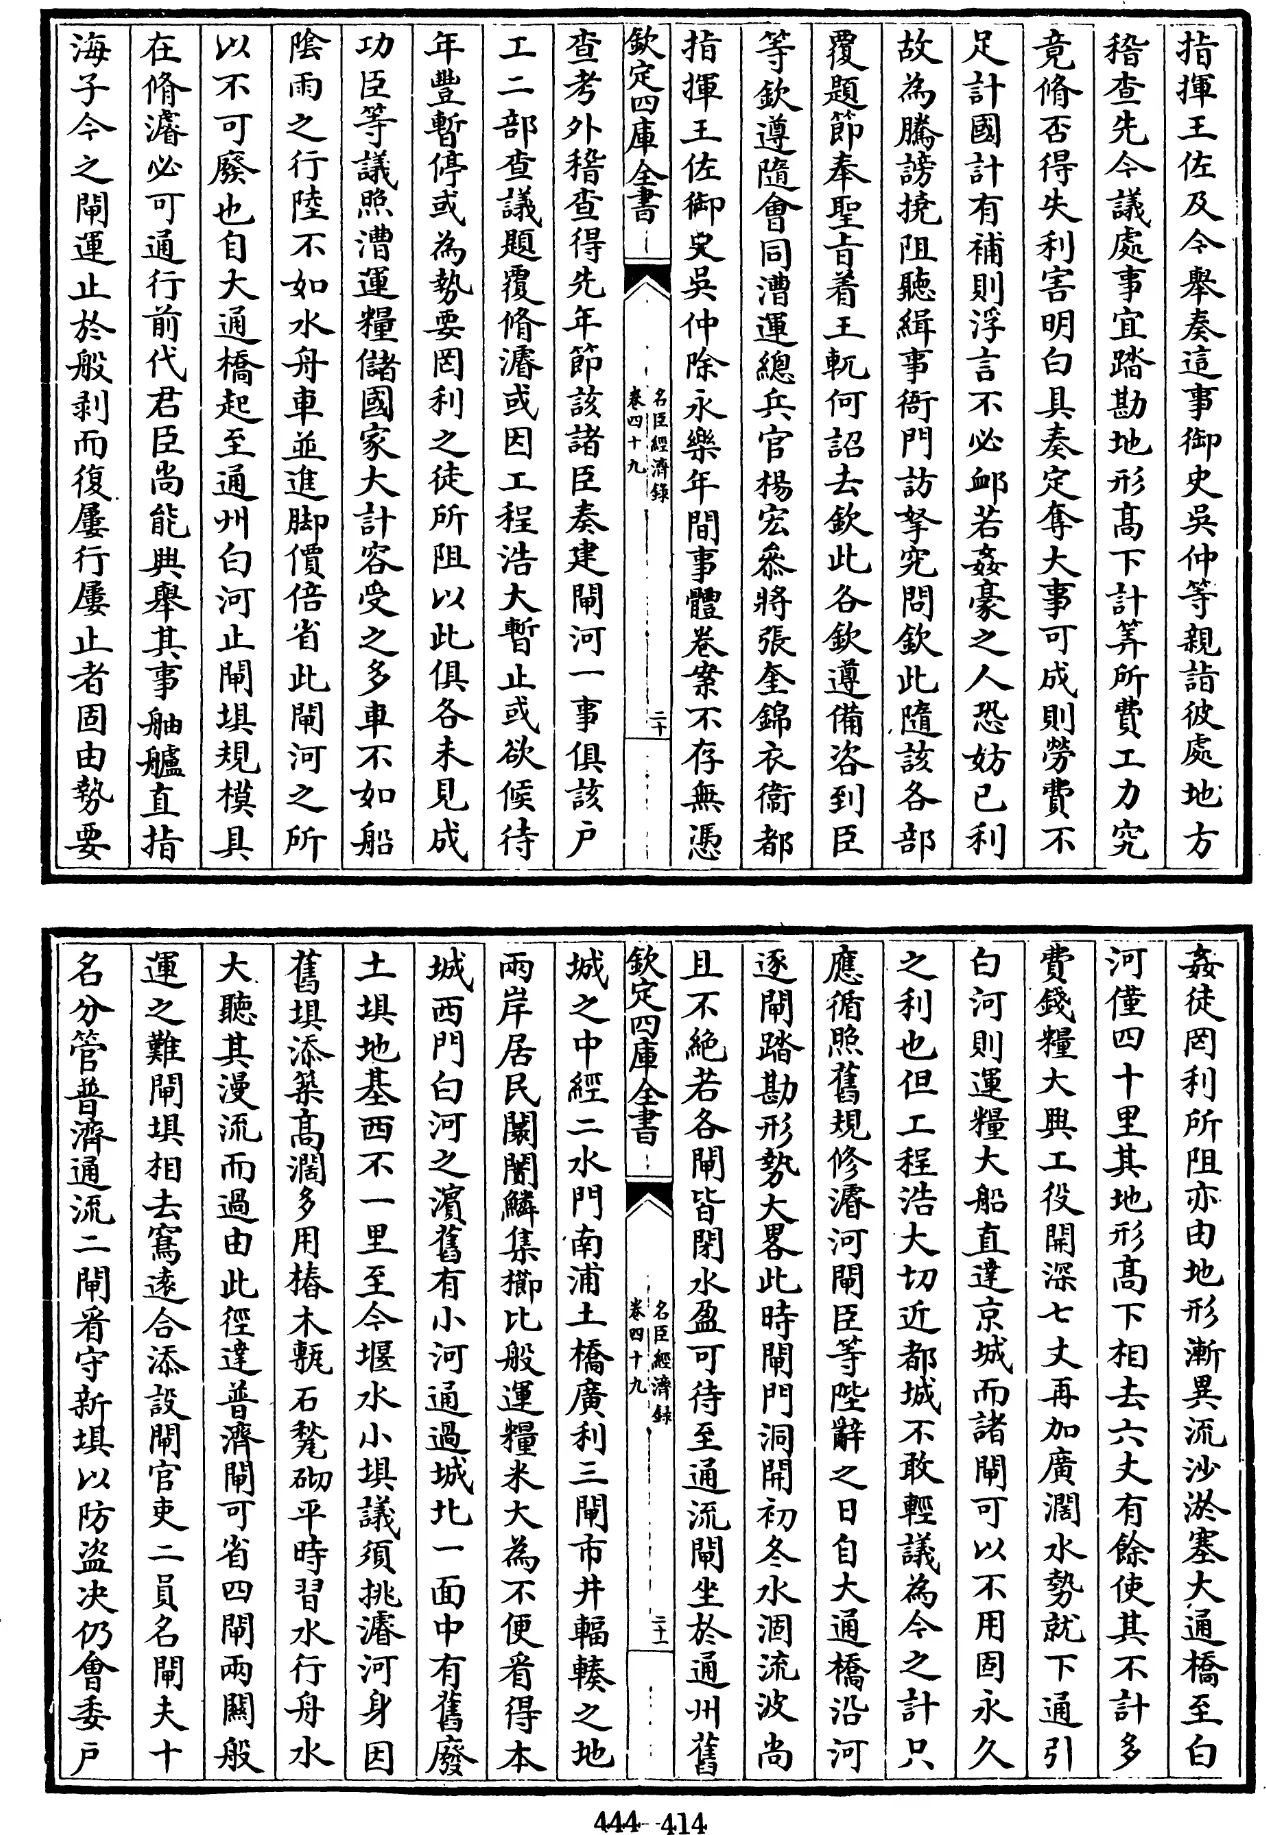 指揮王佐及今舉奏這事御史吳仲等親詣彼處地方
稽查先今議處事宜踏勘地形髙下計筭所費工力究
竟脩否得失利害明白具奏定奪大事可成則勞費不
足計國計有補則浮言不必䘏若姦豪之人恐妨已利
故為騰謗撓阻聽緝事衙門訪拏究問欽此隨該各部
覆題節奉聖旨着王軏何詔去欽此各欽遵備咨到臣
等欽遵隨會同漕運總兵官楊宏叅將張奎錦衣衛都
指揮王佐御史吳仲除永樂年間事體卷案不存無憑
欽定四庫全書
名臣經濟錄
卷四十九
二十
查考外稽查得先年節該諸臣奏建閘河一事俱該户
工二部查議題覆脩濬或因工程浩大暫止或欲候待
年豐暫停或為勢要罔利之徒所阻以此俱各未見成
功臣等議照漕運糧儲國家大計容受之多車不如船
陰雨之行陸不如水舟車並進脚價倍省此閘河之所
以不可廢也自大通橋起至通州白河止閘埧規模具
在脩濬必可通行前代君臣尚能興舉其事舳艫直指
海子今之閘運止於般剥而復屢行屢止者固由勢要
姦徒罔利所阻亦由地形漸異流沙淤塞大通橋至白
河僅四十里其地形髙下相去六丈有餘使其不計多
費錢糧大興工役開深七丈再加廣濶水勢就下通引
白河則運糧大船直達京城而諸閘可以不用固永久
之利也但工程浩大切近都城不敢輕議為今之計只
應循照舊規修濬河閘臣等陛辭之日自大通橋沿河
逐閘踏勘形勢大畧此時閘門洞開初冬水涸流波尚
且不絶若各閘皆閉水盈可待至通流閘坐於通州舊
欽定四庫全書
名臣經濟錄
卷四十九
二十一
城之中經二水門南浦土橋廣利三閘市井輻輳之地
兩岸居民闤闠鱗集櫛比般運糧米大為不便看得本
城西門白河之濵舊有小河通過城北一面中有舊廢
土埧地基西不一里至今堰水小埧議須挑濬河身因
舊埧添築髙濶多用樁木甎石甃砌平時習水行舟水
大聽其漫流而過由此徑達普濟閘可省四閘兩關般
運之難閘埧相去寫逺合添設閘官吏二員名閘夫十
名分管普濟通流二閘看守新埧以防盜决仍會委户
444-414